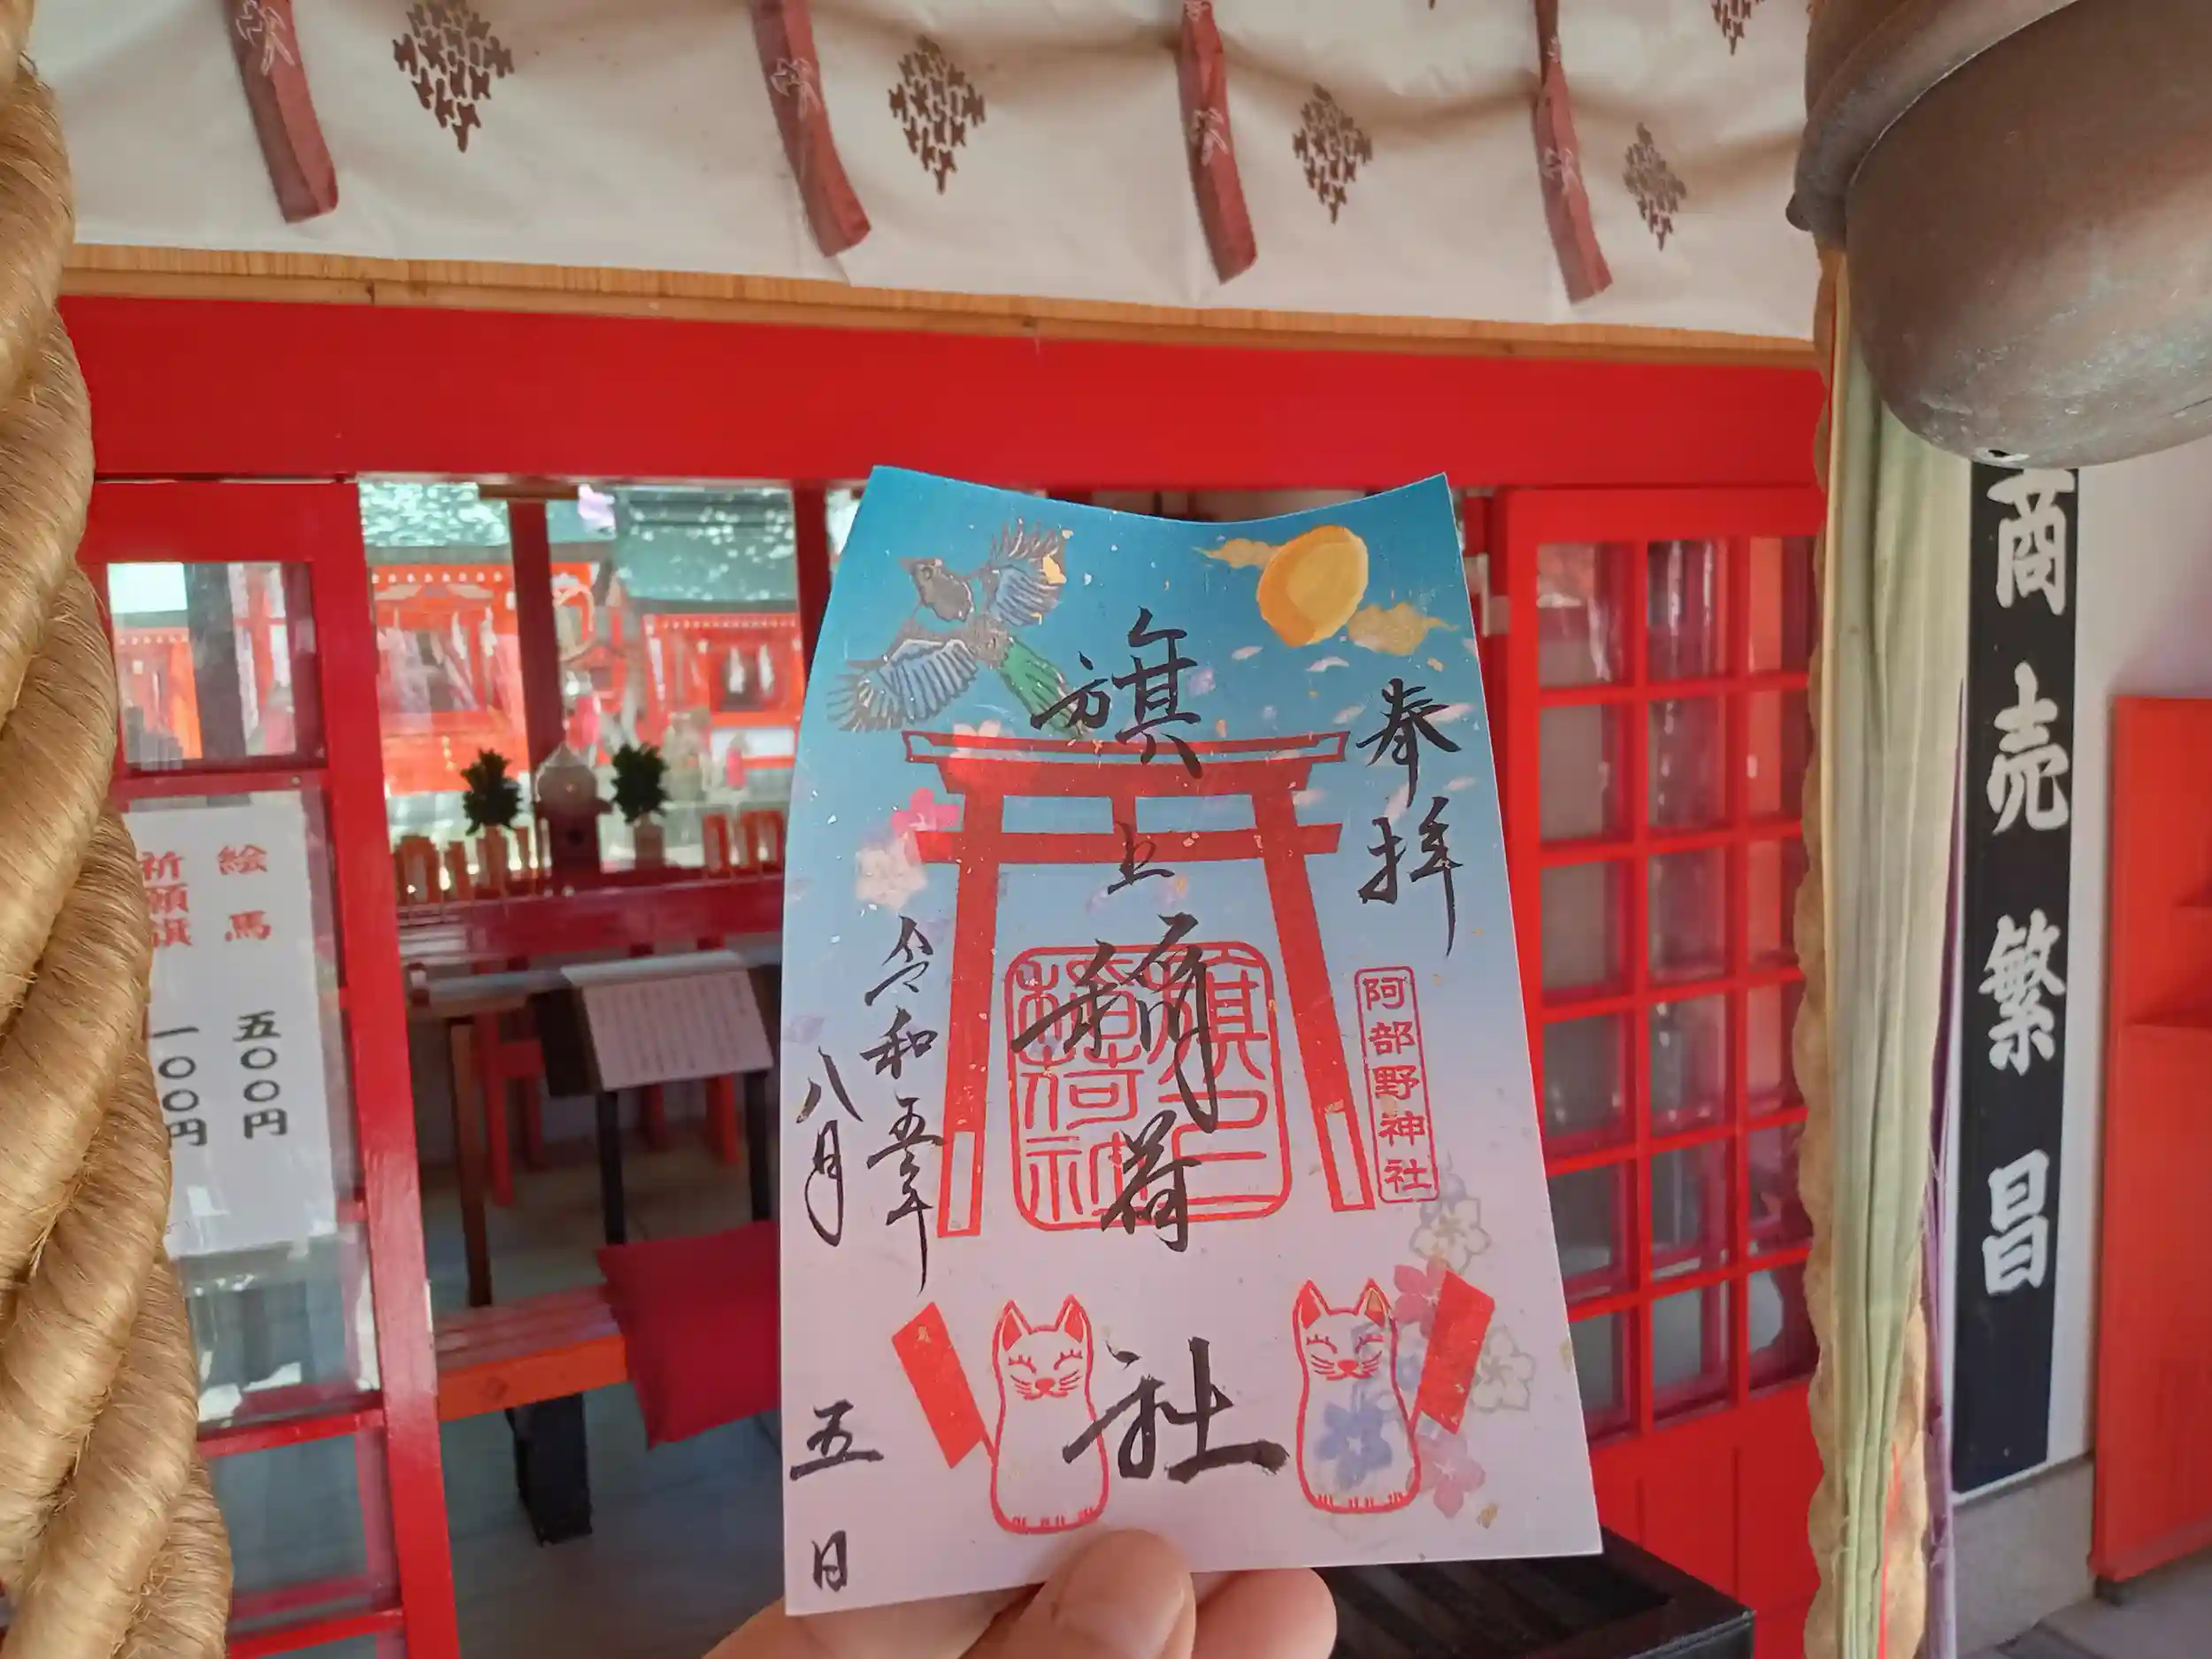 奉拝
旗上稲荷社
阿部野神社
旗上稲荷社
令和五年
八月
五日
商売繁昌
絵馬 五〇〇円
祈願旗 一〇〇円